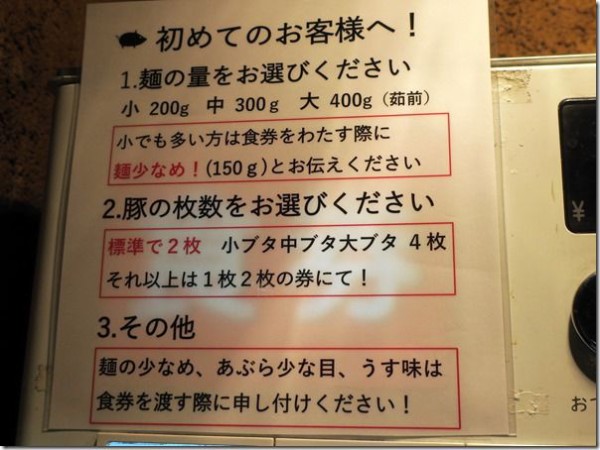 初めてのお客様へ！
1.麺の量をお選びください
小 200g 中 300g 大 400g（茹前）
小でも多い方は食券をわたす際に
麺少なめ！(150g)とお伝えください
2.豚の枚数をお選びください
標準で2枚 小ブタ中ブタ大ブタ 4枚
それ以上は1枚2枚の券にて！
3.その他
麺の少なめ、あぶら少な目、うす味は
食券を渡す際に申し付けください！
¥
おつ